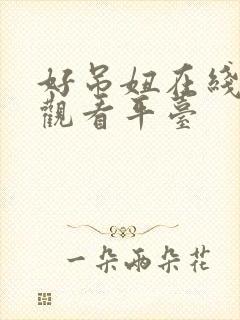 好吊妞在綫
觀看平臺
一朵兩朵花